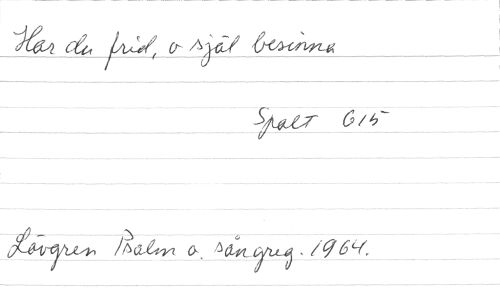 Har du frid, o själ besinna
Spalt 615
Lövgren Psalm o. sångreg. 1964.